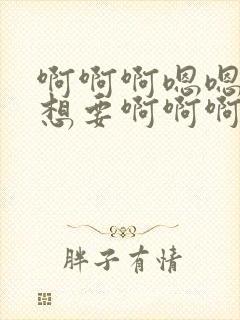 啊啊啊嗯嗯
想要啊啊啊
胖子有情